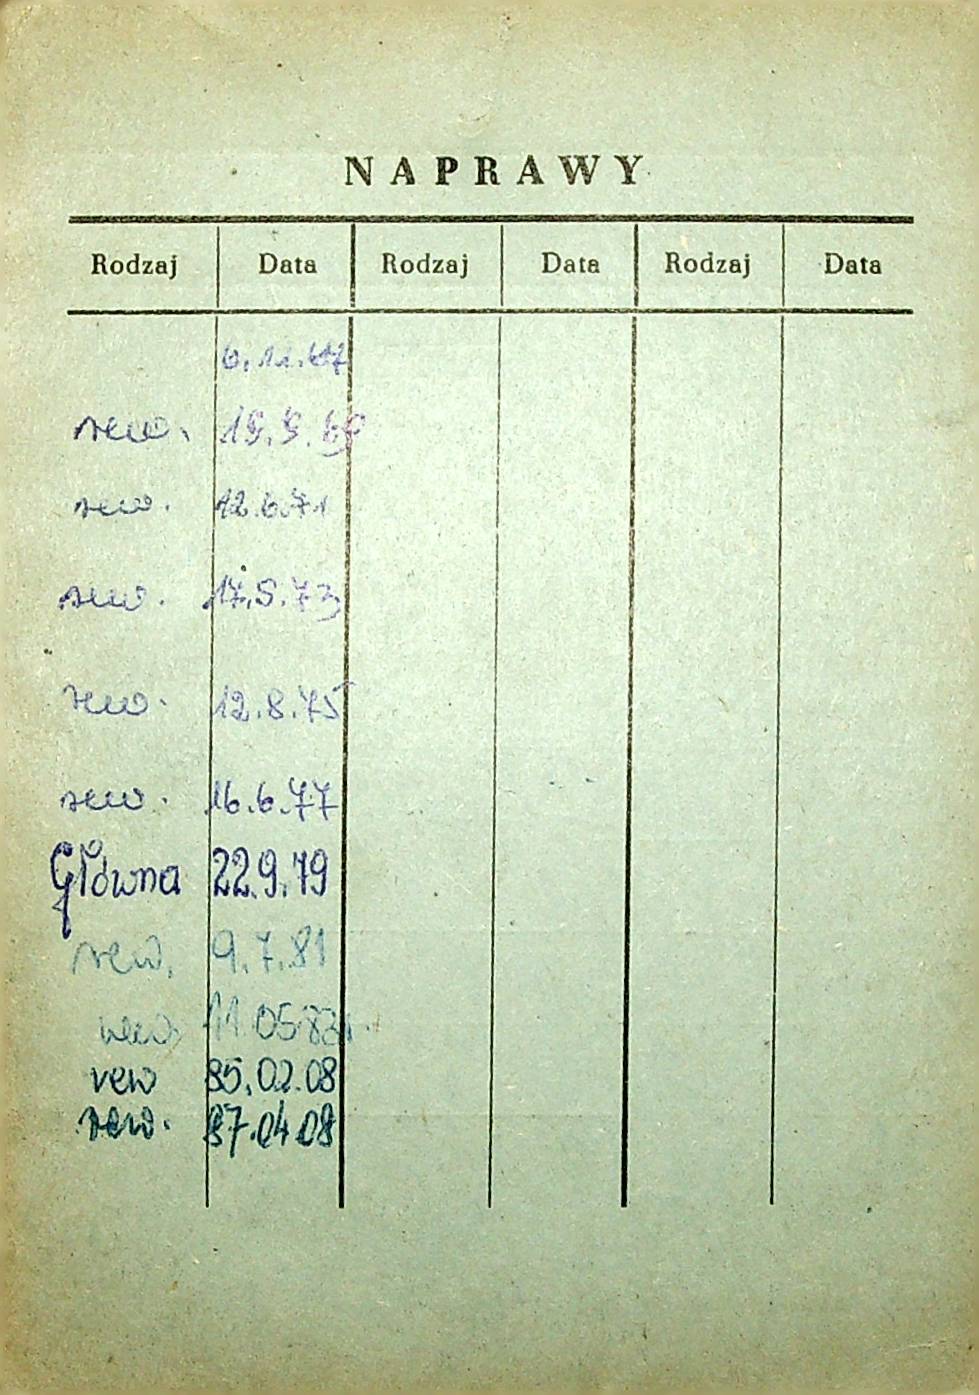 NAPRAWY
Rodzaj Data Rodzaj Data Rodzaj Data
rew. 19.9.69
rew. 12.6.71
rew. 17.5.73
rew. 12.8.75
rew. 16.6.77
Główna 22.9.79
rew. 9.7.81
rew. 11.05.83
rew 85.02.08
rew. 87.04.08